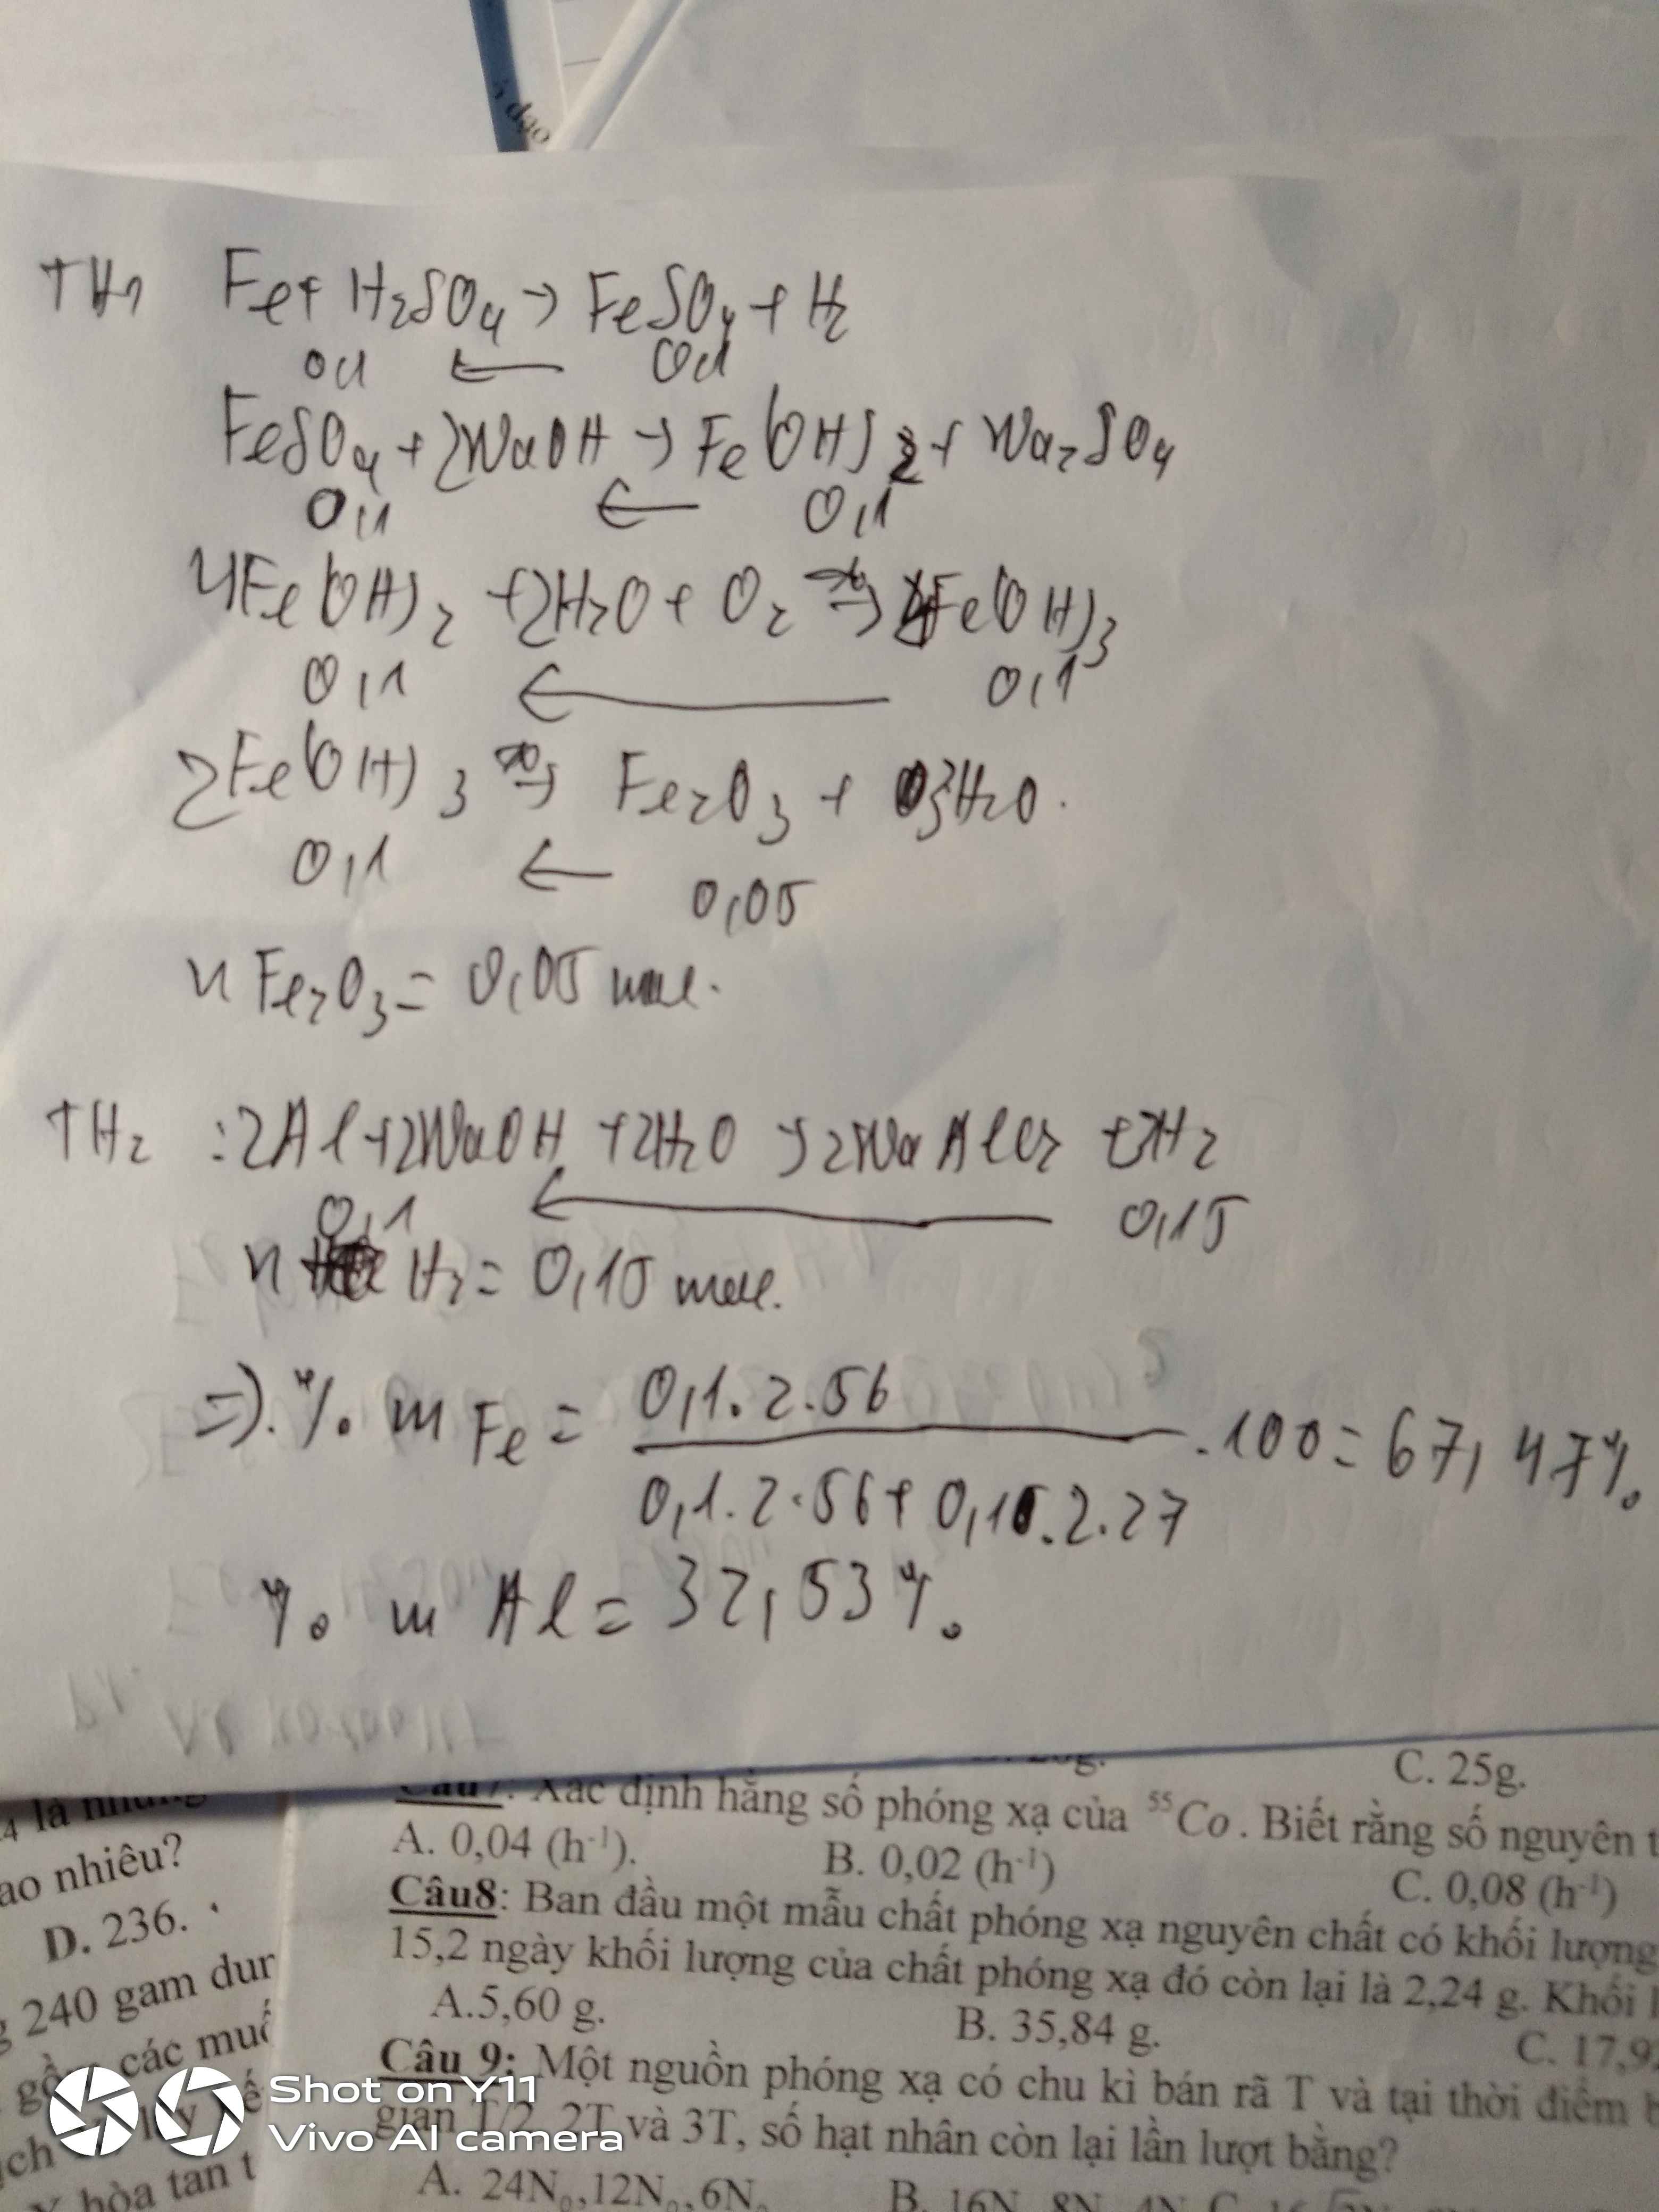 đạo
TH1 Fe + H2SO4 → FeSO4 + H2
0,1 ← 0,1
FeSO4 + 2NaOH → Fe(OH)2 + Na2SO4
0,1 ← 0,1
4Fe(OH)2 + 2H2O + O2 → 4Fe(OH)3
0,1 ← 0,1
2Fe(OH)3 → Fe2O3 + 3H2O.
0,1 ← 0,05
n Fe2O3 = 0,05 mol.
TH2 : 2Al + 2NaOH + 2H2O → 2NaAlO2 + 3H2
0,1 ← 0,15
n H2 = 0,15 mol.
=). % m Fe = 0,1.2.56 / 0,1.2.56 + 0,1.2.27 .100 = 67,47%
% m Al = 32,53%
C. 25g.
Câu7: Xác định hằng số phóng xạ của 55Co. Biết rằng số nguyên
A. 0,04 (h-1). B. 0,02 (h-1) C. 0,08 (h-1)
Câu8: Ban đầu một mẫu chất phóng xạ nguyên chất có khối lượng
15,2 ngày khối lượng của chất phóng xạ đó còn lại là 2,24 g. Khối
A.5,60 g. B. 35,84 g. C. 17,9
Câu 9: Một nguồn phóng xạ có chu kì bán rã T và tại thời điểm
gian T/2, 2T và 3T, số hạt nhân còn lại lần lượt bằng?
A. 24N0,12N0,6N0 B. 16N 8N 4N C.
là những
ao nhiêu?
D. 236.
240 gam dung
các muố
hòa tan
Shot on Y11
Vivo AI camera